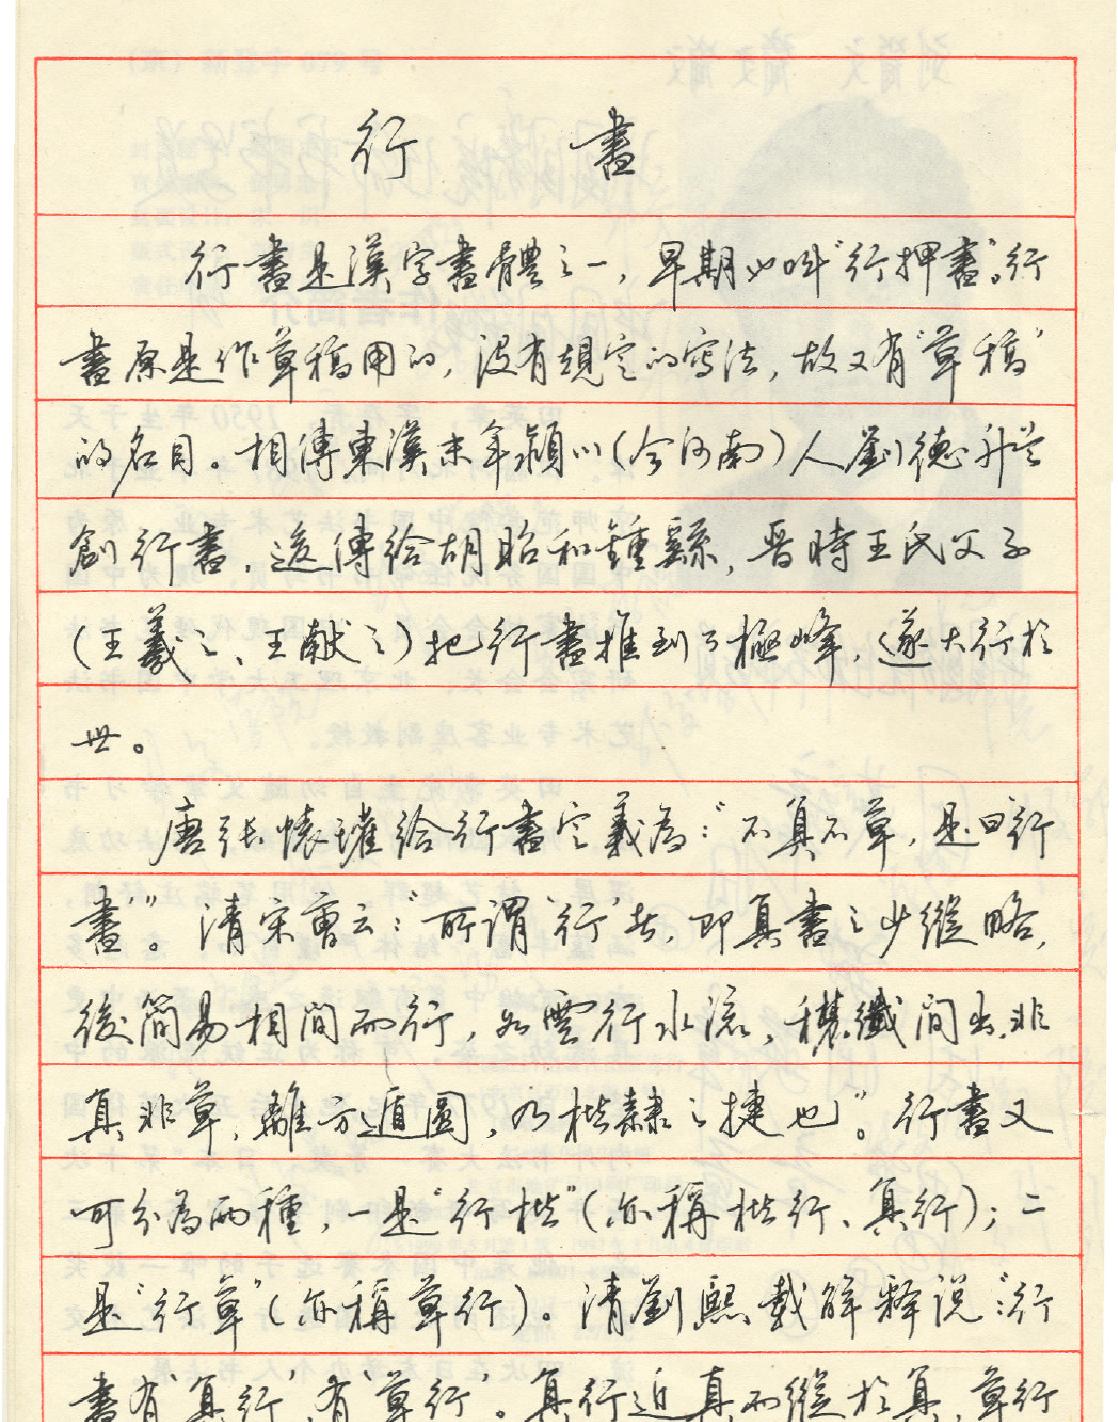 行書
行書是漢字書體之一，早期也叫“行押書”。行
書原是作草稿用的，没有規定的寫法，故又有“草稿”
的名目。相傳東漢末年潁川（今河南）人劉德升首
創行書，後傳給胡昭和鍾繇，晋時王氏父子
（王羲之、王献之）把行書推到了極峰，遂大行於
世。
唐張懷瓘給行書定義為：“不真不草，是曰‘行
書’”。清宋曹云：“所謂‘行’者，即真書之少縱略，
後簡易相間而行，如雲行水流，穠纖間出，非
真非草，離方遁圓，乃楷隸之捷也”。行書又
可分為兩種，一是“行楷”（亦稱楷行、真行）；二
是“行草”（亦稱草行）。清劉熙載解释说：“行
書有‘真行’，有‘草行’。真行近真而縱於真，草行